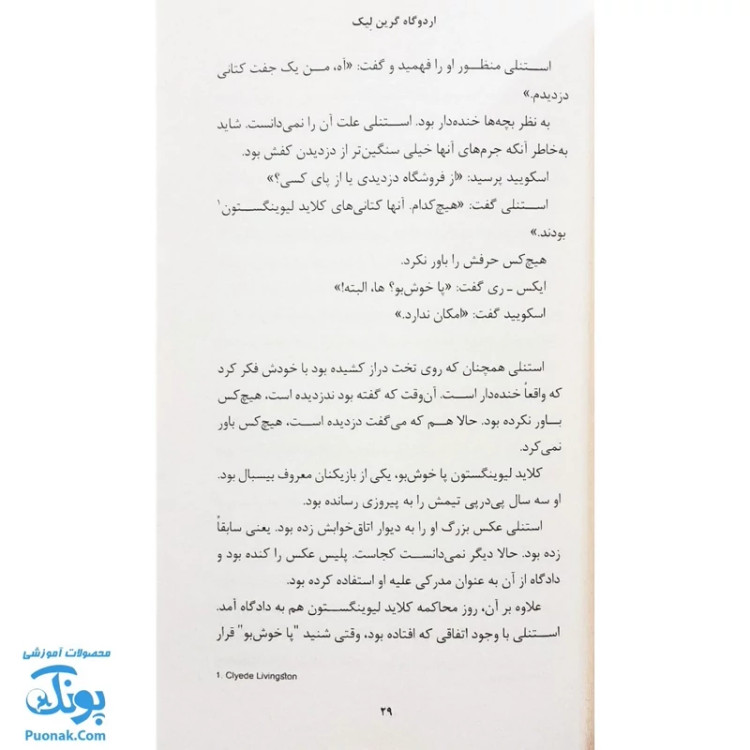 اردوگاه گرین لیک
استنلی منظور او را فهمید و گفت: «آه، من یک جفت کتانی
دزدیدم.»
به نظر بچه‌ها خنده‌دار بود. استنلی علت آن را نمی‌دانست. شاید
به‌خاطر آنکه جرم‌های آنها خیلی سنگین‌تر از دزدیدن کفش بود.
اسکویید پرسید: «از فروشگاه دزدیدی یا از پای کسی؟»
استنلی گفت: «هیچ‌کدام. آنها کتانی‌های کلاید لیوینگستون۱
بودند.»
هیچ‌کس حرفش را باور نکرد.
ایکس ـ ری گفت: «پا خوش‌بو؟ ها، البته!»
اسکویید گفت: «امکان ندارد.»
استنلی همچنان که روی تخت دراز کشیده بود با خودش فکر کرد
که واقعاً خنده‌دار است. آن‌وقت که گفته بود ندزدیده است، هیچ‌کس
باور نکرده بود. حالا هم که می‌گفت دزدیده است، هیچ‌کس باور
نمی‌کرد.
کلاید لیوینگستون پا خوش‌بو، یکی از بازیکنان معروف بیسبال بود.
او سه سال پی‌درپی تیمش را به پیروزی رسانده بود.
استنلی عکس بزرگ او را به دیوار اتاق‌خوابش زده بود. یعنی سابقاً
زده بود. حالا دیگر نمی‌دانست کجاست. پلیس عکس را کنده بود و
دادگاه از آن به عنوان مدرکی علیه او استفاده کرده بود.
علاوه بر آن، روز محاکمه کلاید لیوینگستون هم به دادگاه آمد.
استنلی با وجود اتفاقی که افتاده بود، وقتی شنید "پا خوش‌بو" قرار
1. Clyede Livingston
۲۹
محصولات آموزشی
پونک
Puonak.Com